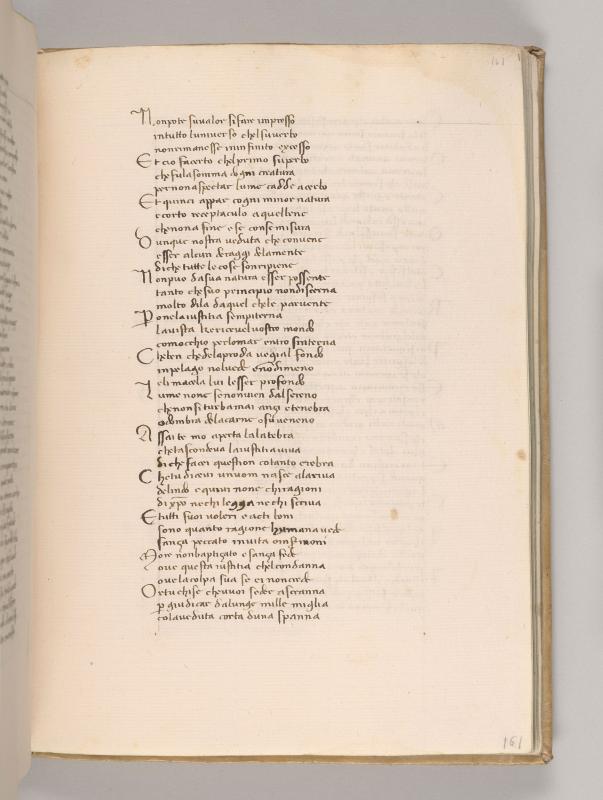 161
Non pote suvalor si fare impresso
in tutto luniverso chel suverbo
non rimanesse in infinito excesso
Et cio facerto chel primo superbo
che fu la somma dogni creatura
per non aspectar lume cadde acerbo
Et quinci appar cogni minor natura
e corto receptaculo a quel bene
che nona fine e se con se misura
Dunque nostra veduta che convene
esser alcun de raggi dela mente
di che tutte le cose son ripiene
Non puo da sua natura esser possente
tanto che suo principio non discerna
molto di la da quel chele parvente
Pero ne la iustitia sempiterna
la vista che riceve l vostro mondo
comocchio per lo mar entro sinterna
Che ben che dela proda vegial fondo
in pelago nol vede e nodimeno
eli ma cela lui lesser profondo
Lume none se non vien dal sereno
che non si turba mai anzi e tenebra
od ombra dela carne o su veneno
Assai te mo aperta la latebra
che tascondeva la iustitia viva
di che facei question cotanto crebra
Che tu dicevi un uom nasce a la riva
de lindo e quivi none chi ragioni
di xpo ne chi legga ne chi scriva
E tutti suoi voleri e acti boni
sono quanto ragione humana vede
sanza peccato in vita o in sermoni
More non baptizato e sanza fede
ove questa iustitia chel condanna
ove la colpa sua se ei non crede
Or tu chi se che vuoi sedere a scranna
p giudicar da lunge mille miglia
cola veduta corta duna spanna
161